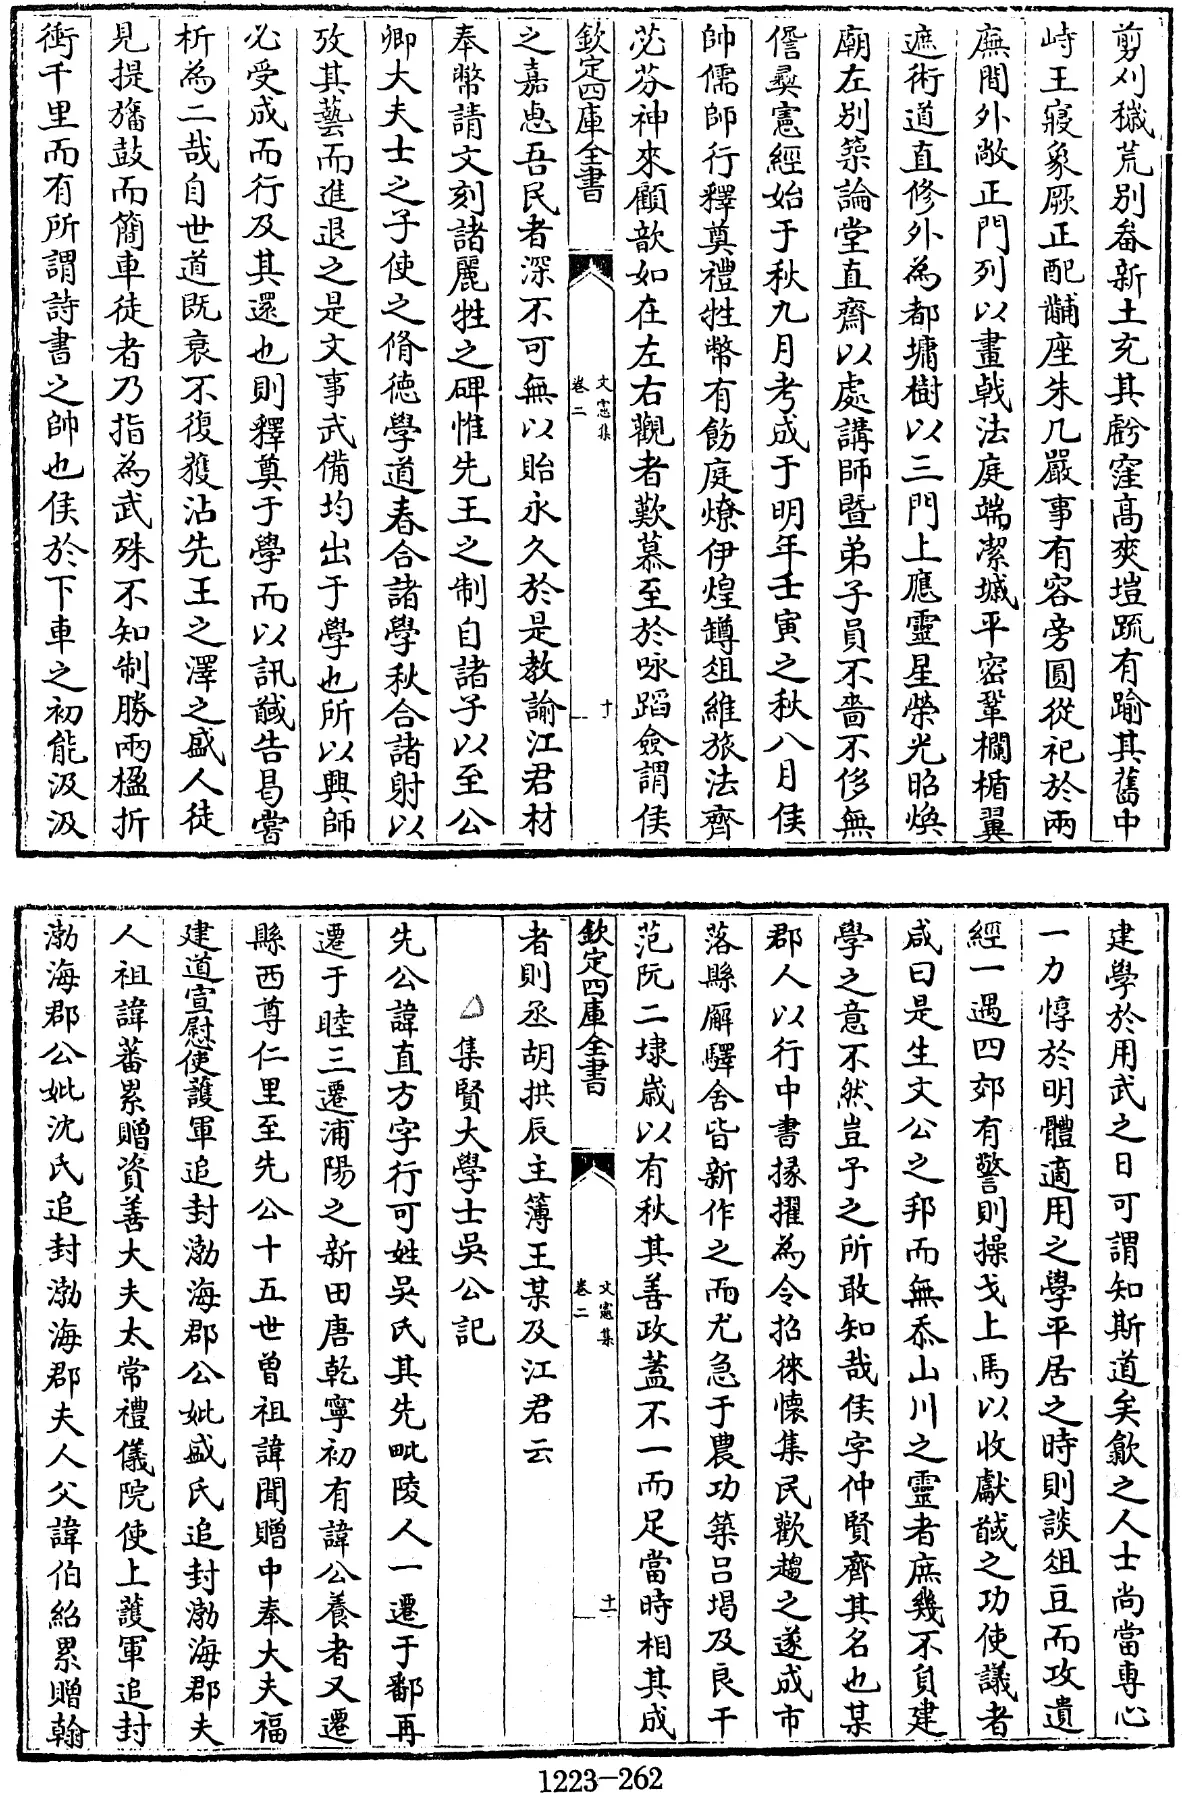 剪刈穢荒别畚新土充其虧窪髙爽塏疏有踰其舊中
峙王寢象厥正配黼座朱几嚴事有容旁圓從祀於兩
廡間外敞正門列以畫㦸法庭端潔墄平密鞏欄楯翼
遮術道直修外為都墉樹以三門上應靈星榮光昭煥
廟左别築論堂直齋以處講師暨弟子員不嗇不侈無
僭彛憲經始于秋九月考成于明年壬寅之秋八月侯
帥儒師行釋奠禮牲幣有飭庭燎伊煌罇俎維旅法齊
苾芬神來顧歆如在左右觀者歎慕至於咏蹈僉謂侯
欽定四庫全書
文憲集
卷二
十
之嘉恵吾民者深不可無以貽永久於是教諭江君材
奉幣請文刻諸麗牲之碑惟先王之制自諸子以至公
卿大夫士之子使之脩徳學道春合諸學秋合諸射以
攷其藝而進退之是文事武備均出于學也所以興師
必受成而行及其還也則釋奠于學而以訊馘告曷嘗
析為二哉自世道既衰不復獲沾先王之澤之盛人徒
見提旛鼓而簡車徒者乃指為武殊不知制勝兩楹折
衝千里而有所謂詩書之帥也侯於下車之初能汲汲
建學於用武之日可謂知斯道矣歙之人士尚當専心
一力惇於明體適用之學平居之時則談俎豆而攻遺
經一遇四郊有警則操戈上馬以收獻馘之功使議者
咸曰是生文公之邦而無忝山川之靈者庶幾不負建
學之意不然豈予之所敢知哉侯字仲賢齊其名也某
郡人以行中書掾擢為令招徠懐集民歡趨之遂成市
落縣廨驛舍皆新作之而尤急于農功築吕堨及良干
范阮二埭嵗以有秋其善政蓋不一而足當時相其成
欽定四庫全書
文憲集
卷二
十一
者則丞胡拱辰主簿王某及江君云
集賢大學士吳公記
先公諱直方字行可姓吳氏其先毗陵人一遷于鄱再
遷于睦三遷浦陽之新田唐乾寧初有諱公養者又遷
縣西尊仁里至先公十五世曽祖諱聞贈中奉大夫福
建道宣慰使護軍追封渤海郡公妣盛氏追封渤海郡夫
人祖諱蕃累贈資善大夫太常禮儀院使上護軍追封
渤海郡公妣沈氏追封渤海郡夫人父諱伯紹累贈翰
1223-262